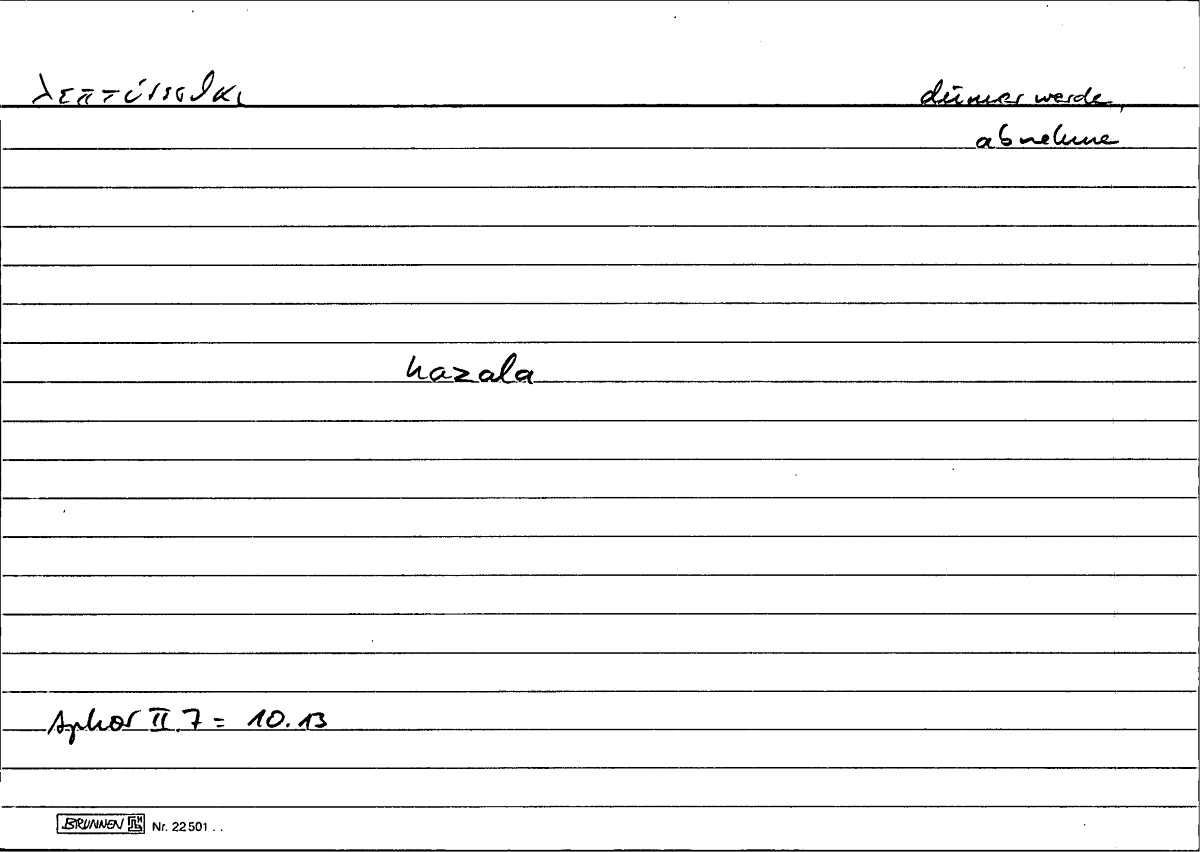 λεπτύνεσθαι dünner werde,
abnehme
hazala
Aphor II.7 = 10.13
BRUNNEN Nr. 22501 . .